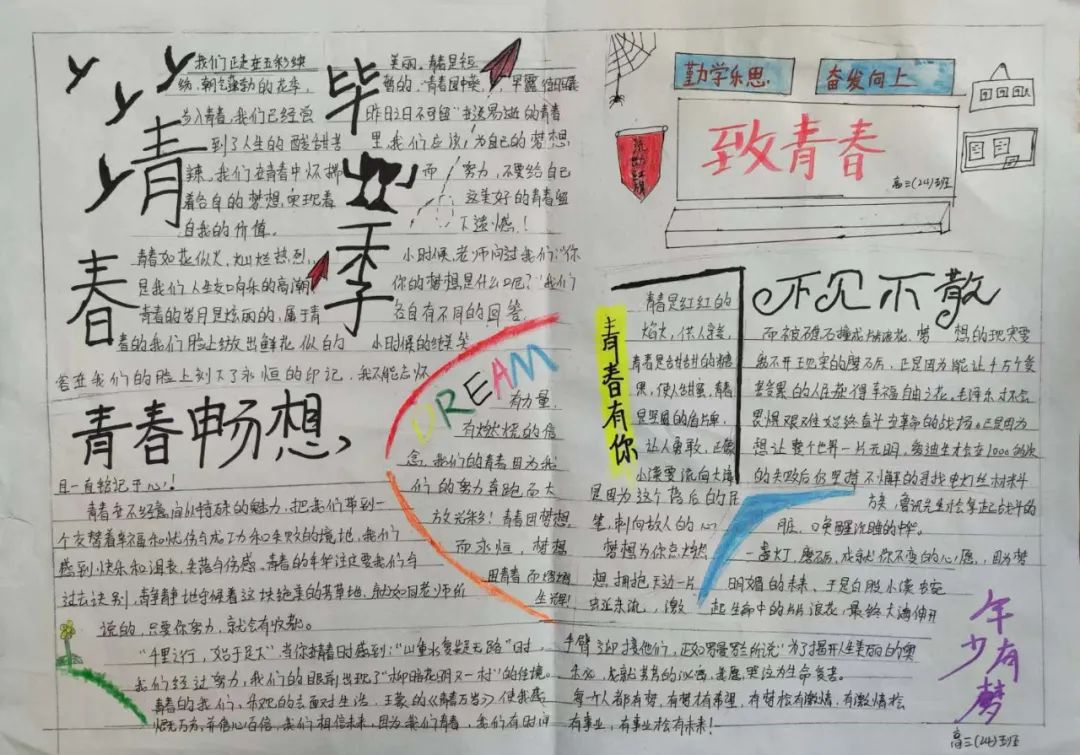 少
青
春
毕
业
季
我们正走在五彩缤
纷，朝气蓬勃的花季，
步入青春，我们已经尝
到了人生的酸甜苦
辣。我们在青春中怀揣
着各自的梦想，实现着
自我的价值。
青春如花似火，灿烂热烈，
是我们人生交响乐的高潮，
青春的岁月是炫丽的，属于青
春的我们脸上绽放出鲜花似的的
美丽。青春是短
暂的，
昨日不可留
里，我们应该，为自己的梦想
而努力，不要给自己
这美好的青春留
下遗憾！
小时候，老师问过我们：“你
你的梦想是什么呢？”我们
各自有不同的回答，
小时候的纯美笑
容在我们的脸上刻下了永恒的印记，我不能忘怀，
青春畅想，
且一直铭记于心！
青春在不经意间以特殊的魅力，把我们带到一
个交替着幸福和忧伤与成功和失败的境地，我们
感到快乐和沮丧，失落与伤感。青春的年华注定要我们与
过去诀别，静静地守候着这块绝美的芳草地，就如同老师所
说的，只要你努力，就会有收获。
“千里之行，始于足下”，当你在青春时感到：“山重水复疑无路”时，
我们经过努力，我们的眼前出现了“柳暗花明又一村”的佳境。
青春的我们，乐观的去面对生活，王蒙的《青春万岁》使我感
慨万万，并信心百倍，我们相信未来，因为我们青春，我们有时间
DREAM
有力量，
有燃烧的信
念，我们的青春因为我
们的努力奔跑而大
放光彩！青春因梦想
而永恒，梦想
因青春而熠熠
生辉！
勤学乐思
奋发向上
流动红旗
致青春
高三（24）班
青春有你
青春是红红的
焰火，供人穿梭，
青春是甜甜的糖
果，使人甜蜜，青春
是坚固的盾牌，
让人勇敢，正像
小溪要流向大海
是因为这个背后的
笔，刺向敌人的心
梦想为你点燃
想拥抱天边一片
不见不散
而被礁石撞成片片浪花，梦想的现实要
离不开现实的磨石，正是因为能让千万个受
苦受累的人民获得幸福自由之花，毛泽东才不会
畏惧艰难始终奋斗在革命的战场。正是因为
想让整个世界一片光明，爱迪生才会在1000多次
的失败后仍坚持不懈的寻找电灯丝材料
方案，鲁迅先生才会拿起战斗的
脏，唤醒沉睡的中华。
一盏灯，磨石，成就你不变的心愿，因为梦
明媚的未来，于是白胜小溪宛
蜿东流，激起生命中的片片浪花，最终大海伸开
手臂迎接他们，正如罗曼罗兰所说“为了揭开人生美丽的奥
每个人都有梦，有梦才有希望，有梦松有激情，有激情松
有事业，有事业松有未来！
年少有梦
高三（24）班